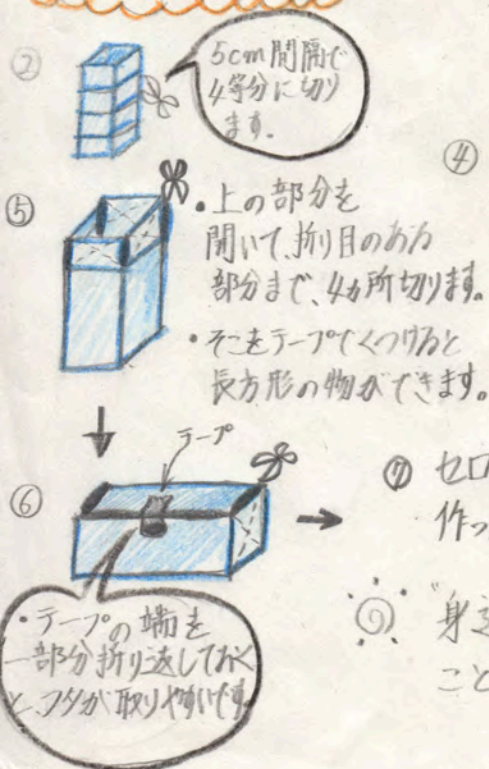 ②
5cm間隔で
4等分に切り
ます。
④
⑤
・上の部分を
開いて、折り目のある
部分まで、4カ所切ります。
・そこをテープでくっつけると
長方形の物ができます。
テープ
⑥
・テープの端を
一部分折り返しておく
と、フタが取りやすいです。
⑦ セロ
作っ
身
こと